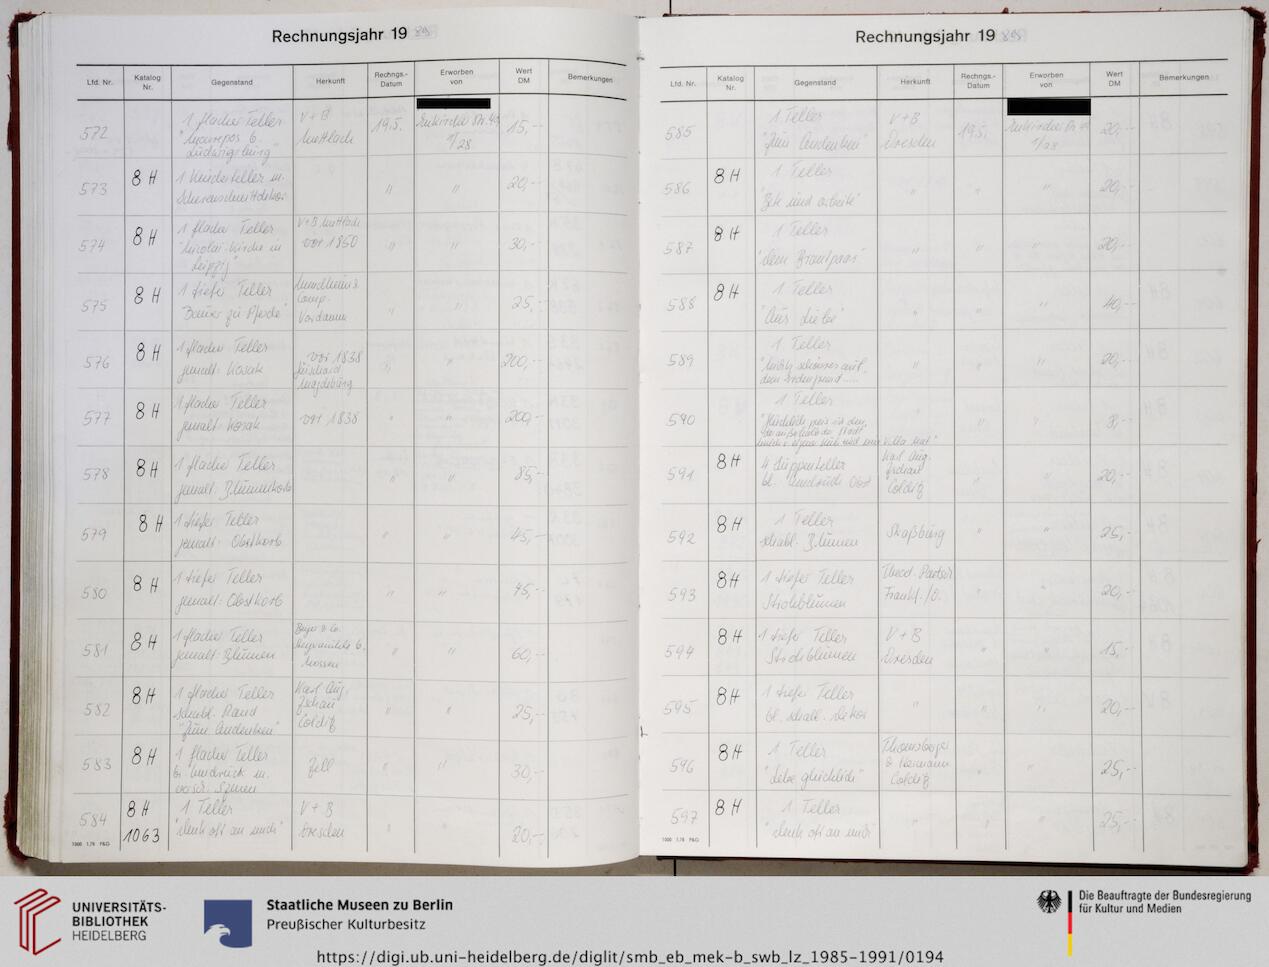 Rechnungsjahr 19 89
Lfd. Nr. Katalog Nr. Gegenstand Herkunft Rechngs.-Datum Erworben von Wert DM Bemerkungen
572 1 flacher Teller V + B 19.5. 15,--
Mettlach
Ludwigsburg"
573 8 H 1 Kinderteller m. " " 20,--
Scherenschnittdekor
574 8 H 1 flacher Teller V + B Mettlach " " 30,--
"Nicolai-Kirche in vor 1860
Leipzig"
575 8 H 1 tiefer Teller " " 25,--
"Bauer zu Pferde" Comp.
Vordamm
576 8 H 1 flacher Teller vor 1838 " 200,--
gemalt: Kosak Magdeburg
577 8 H 1 flacher Teller vor 1838 " " 200,--
gemalt: Kosak
578 8 H 1 flacher Teller " " 85,--
gemalt: Blumenkorb
579 8 H 1 tiefer Teller " " 45,--
gemalt: Obstkorb
580 8 H 1 tiefer Teller " " 45,--
gemalt: Obstkorb
581 8 H 1 flacher Teller " " 60,--
gemalt: Blumen
582 8 H 1 flacher Teller Karl Aug. " " 25,--
schabl. Rand Zschau
"Zum Andenken" Colditz
583 8 H 1 flacher Teller Zell " " 30,--
584 8 H 1 Teller V + B " " 20,--
1063 "denk oft an mich" Dresden
1000 1.78 P&G
Rechnungsjahr 19 89
Lfd. Nr. Katalog Nr. Gegenstand Herkunft Rechngs.-Datum Erworben von Wert DM Bemerkungen
585 1 Teller V + B 19.5. 20,--
"Zum Andenken" Dresden
586 8 H 1 Teller " " " 20,--
"Bete und arbeite"
587 8 H 1 Teller " " " 20,--
"dem Brautpaar"
588 8 H 1 Teller " " " 40,--
"Aus Liebe"
589 1 Teller " " " 20,--
590 1 Teller " " 8,--
591 8 H 4 Suppenteller Karl Aug. " " 20,--
bl. Umdruck Obst Zschau
Colditz
592 8 H 1 Teller Straßburg " " 25,--
schabl. Blumen
593 8 H 1 tiefer Teller Theod. Paetsch " " 20,--
Strohblumen Frankf./O.
594 8 H 1 tiefer Teller V + B " " 15,--
Strohblumen Dresden
595 8 H 1 tiefer Teller " " " 20,--
bl. schabl. Dekor
596 8 H 1 Teller Thomsberger " " 25,--
"Lebe glücklich" & Hermann
Colditz
597 8 H 1 Teller " " " 25,--
"denk oft an mich"
1000 1.78 P&G
UNIVERSITÄTS-
BIBLIOTHEK
HEIDELBERG
Staatliche Museen zu Berlin
Preußischer Kulturbesitz
Die Beauftragte der Bundesregierung
für Kultur und Medien
https://digi.ub.uni-heidelberg.de/diglit/smb_eb_mek-b_swb_lz_1985-1991/0194